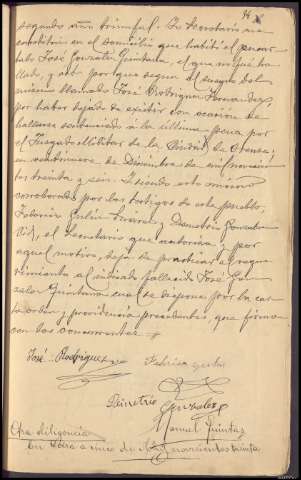 segundo año triunfal. El Secretario me
constituí en el domicilio que habitó el penan-
tado José González Quintana, el que no fué ha-
llado, y sí por que según el suegro del
mismo llamado José Rodríguez Fernández,
por haber dejado de existir con ocasión de
hallarse sentenciado a la última pena por
el Juzgado Militar de la Ciudad de Orense,
en veintinueve de Diciembre de mil novecien-
tos treinta y seis. Y siendo esto mismo
corroborado por los testigos de este pueblo,
y Demetrio González
el Secretario que autoriza y por
aquel motivo, deja de practicar el reque-
rimiento al indicado fallecido José Gon-
zález Quintana cual se dispone por la car-
ta orden y providencia precedentes, que firma
con los concurrentes.
José Rodríguez
Demetrio González
Manuel Quintas
Otra diligencia
En a cinco de mil novecientos treinta